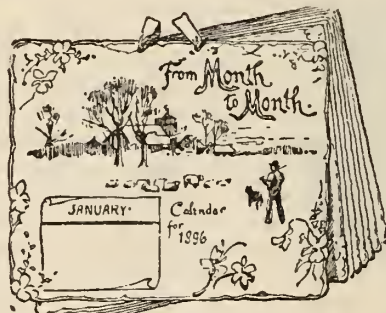 From Month
to Month.
JANUARY.
Calendar
for
1896